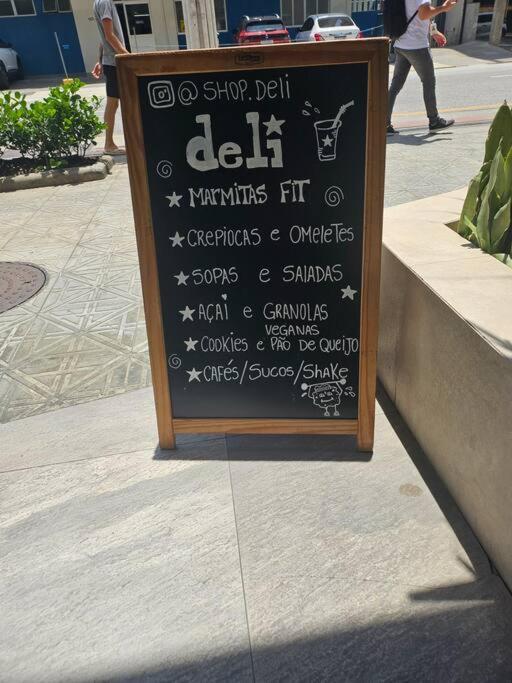 @SHOP.Deli
deli
MARMITAS FIT
CREPIOCAS e OMELETES
SOPAS e SALADAS
AÇAÍ e GRANOLAS
VEGANAS
COOKIES e PÃO DE QUEIJO
CAFÉS/SUCOS/SHAKE